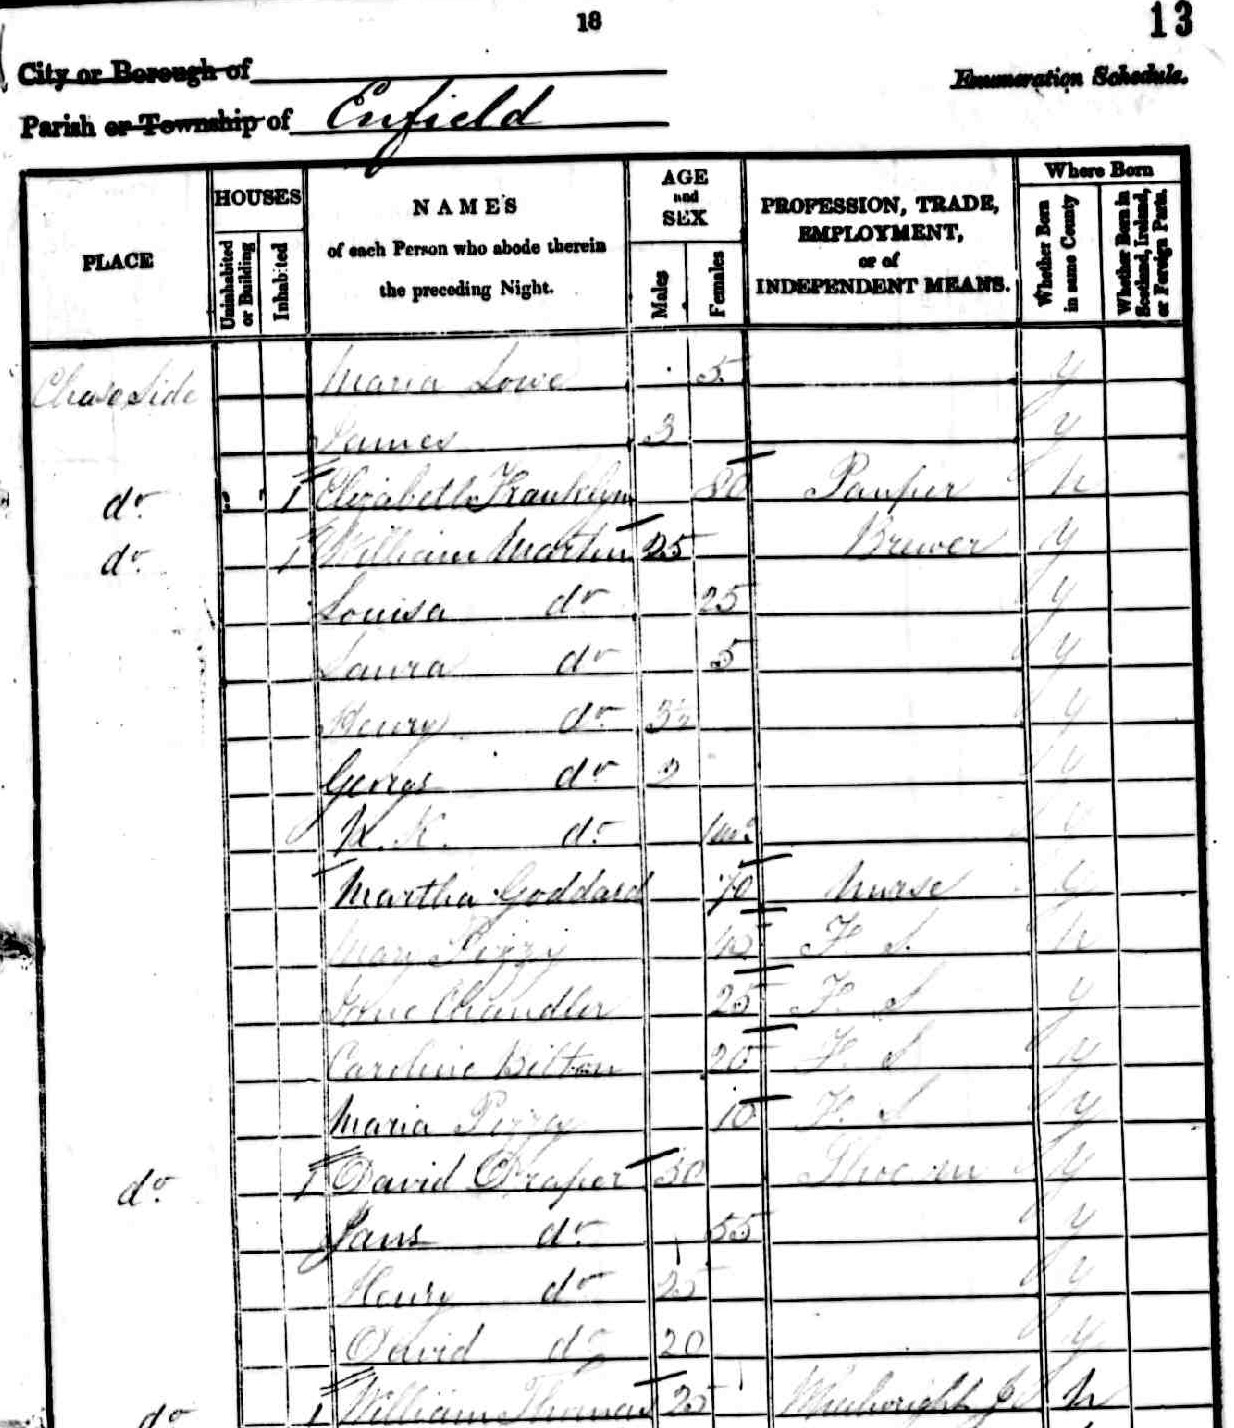 18
13
City or Borough of
Enumeration Schedule.
Parish or Township of Enfield
PLACE
HOUSES
Uninhabited or Building
Inhabited
NAMES
of each Person who abode therein
the preceding Night.
AGE and SEX
Males
Females
PROFESSION, TRADE, EMPLOYMENT, or of INDEPENDENT MEANS.
Where Born
Whether Born in same County
Whether Born in Scotland, Ireland, or Foreign Parts.
Chase Side Maria Lowe 5 y
James 3 y
do 1 Elizabeth Franklyn 80 Pauper n
do 1 William Martin 25 Brewer y
Louisa do 25 y
Laura do 5 y
Henry do 3½ y
George do 2 y
N. K. do 1 mo y
Martha Goddard 70 Nurse y
Mary Pizzy F. S. n
Jane Chandler 25 F. S y
Caroline Bilton 20 F. S y
Maria Pizzey 10 F. S y
do 1 David Draper 50 Shoe m y
Jane do 55 y
Henry do 25 y
David do 20 y
do 1 William Thomas 25 J n